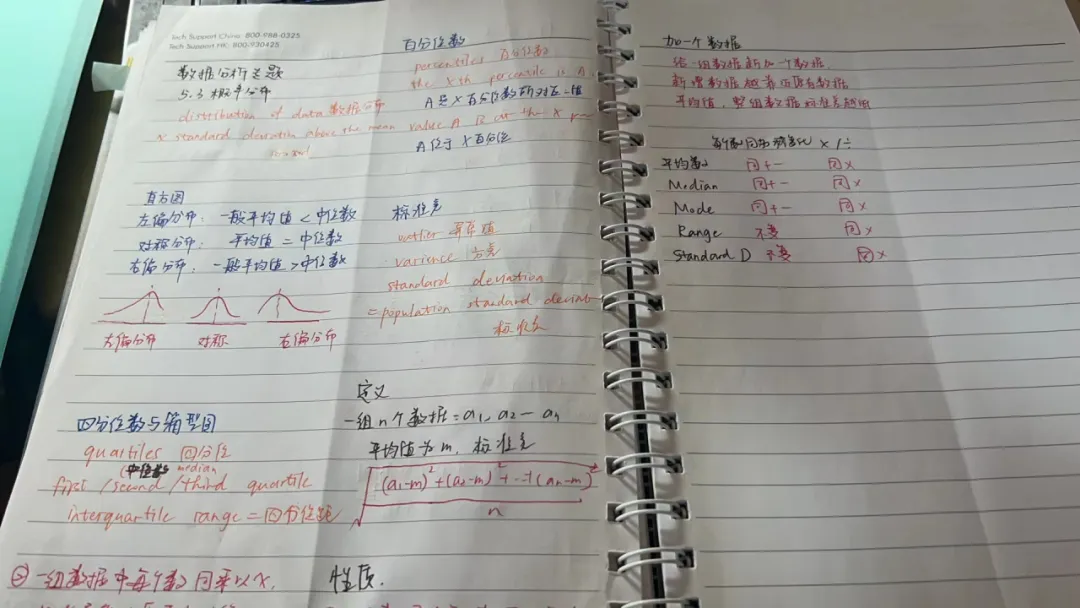 Tech Support China: 800-988-0325
Tech Support HK: 800-930425
数据分析主题
5.3 概率分布
distribution of data 数据分布
x standard deviation above the mean
直方图
左偏分布: 一般平均值 < 中位数
对称分布: 平均值 = 中位数
右偏分布: 一般平均值 > 中位数
左偏分布 对称 右偏分布
四分位数与箱型图
quartiles 四分位
(中位数 median
first / second / third quartile
interquartile range = 四分位距
② 一组数据中每个数同乘以x,
百分位数
percentiles 百分位数
the xth percentile is A
A是X百分位数所对应一值
value A is at the x
A位于X百分位
标准差
outlier 异常值
varience 方差
standard deviation
= population standard deviat
标准差
定义
一组n个数据 = a₁, a₂ — aₙ
平均值为m, 标准差
√(a₁-m)²+(a₂-m)²+…+(aₙ-m)²
n
性质.
加一个数据
给一组数据新加一个数据
新增数据越靠近原有数据
平均值, 整组数据标准差越
每个数同 × / ÷
平均数 同+- 同×
Median 同+- 同×
Mode 同+- 同×
Range 不变 同×
Standard D 不变 同×